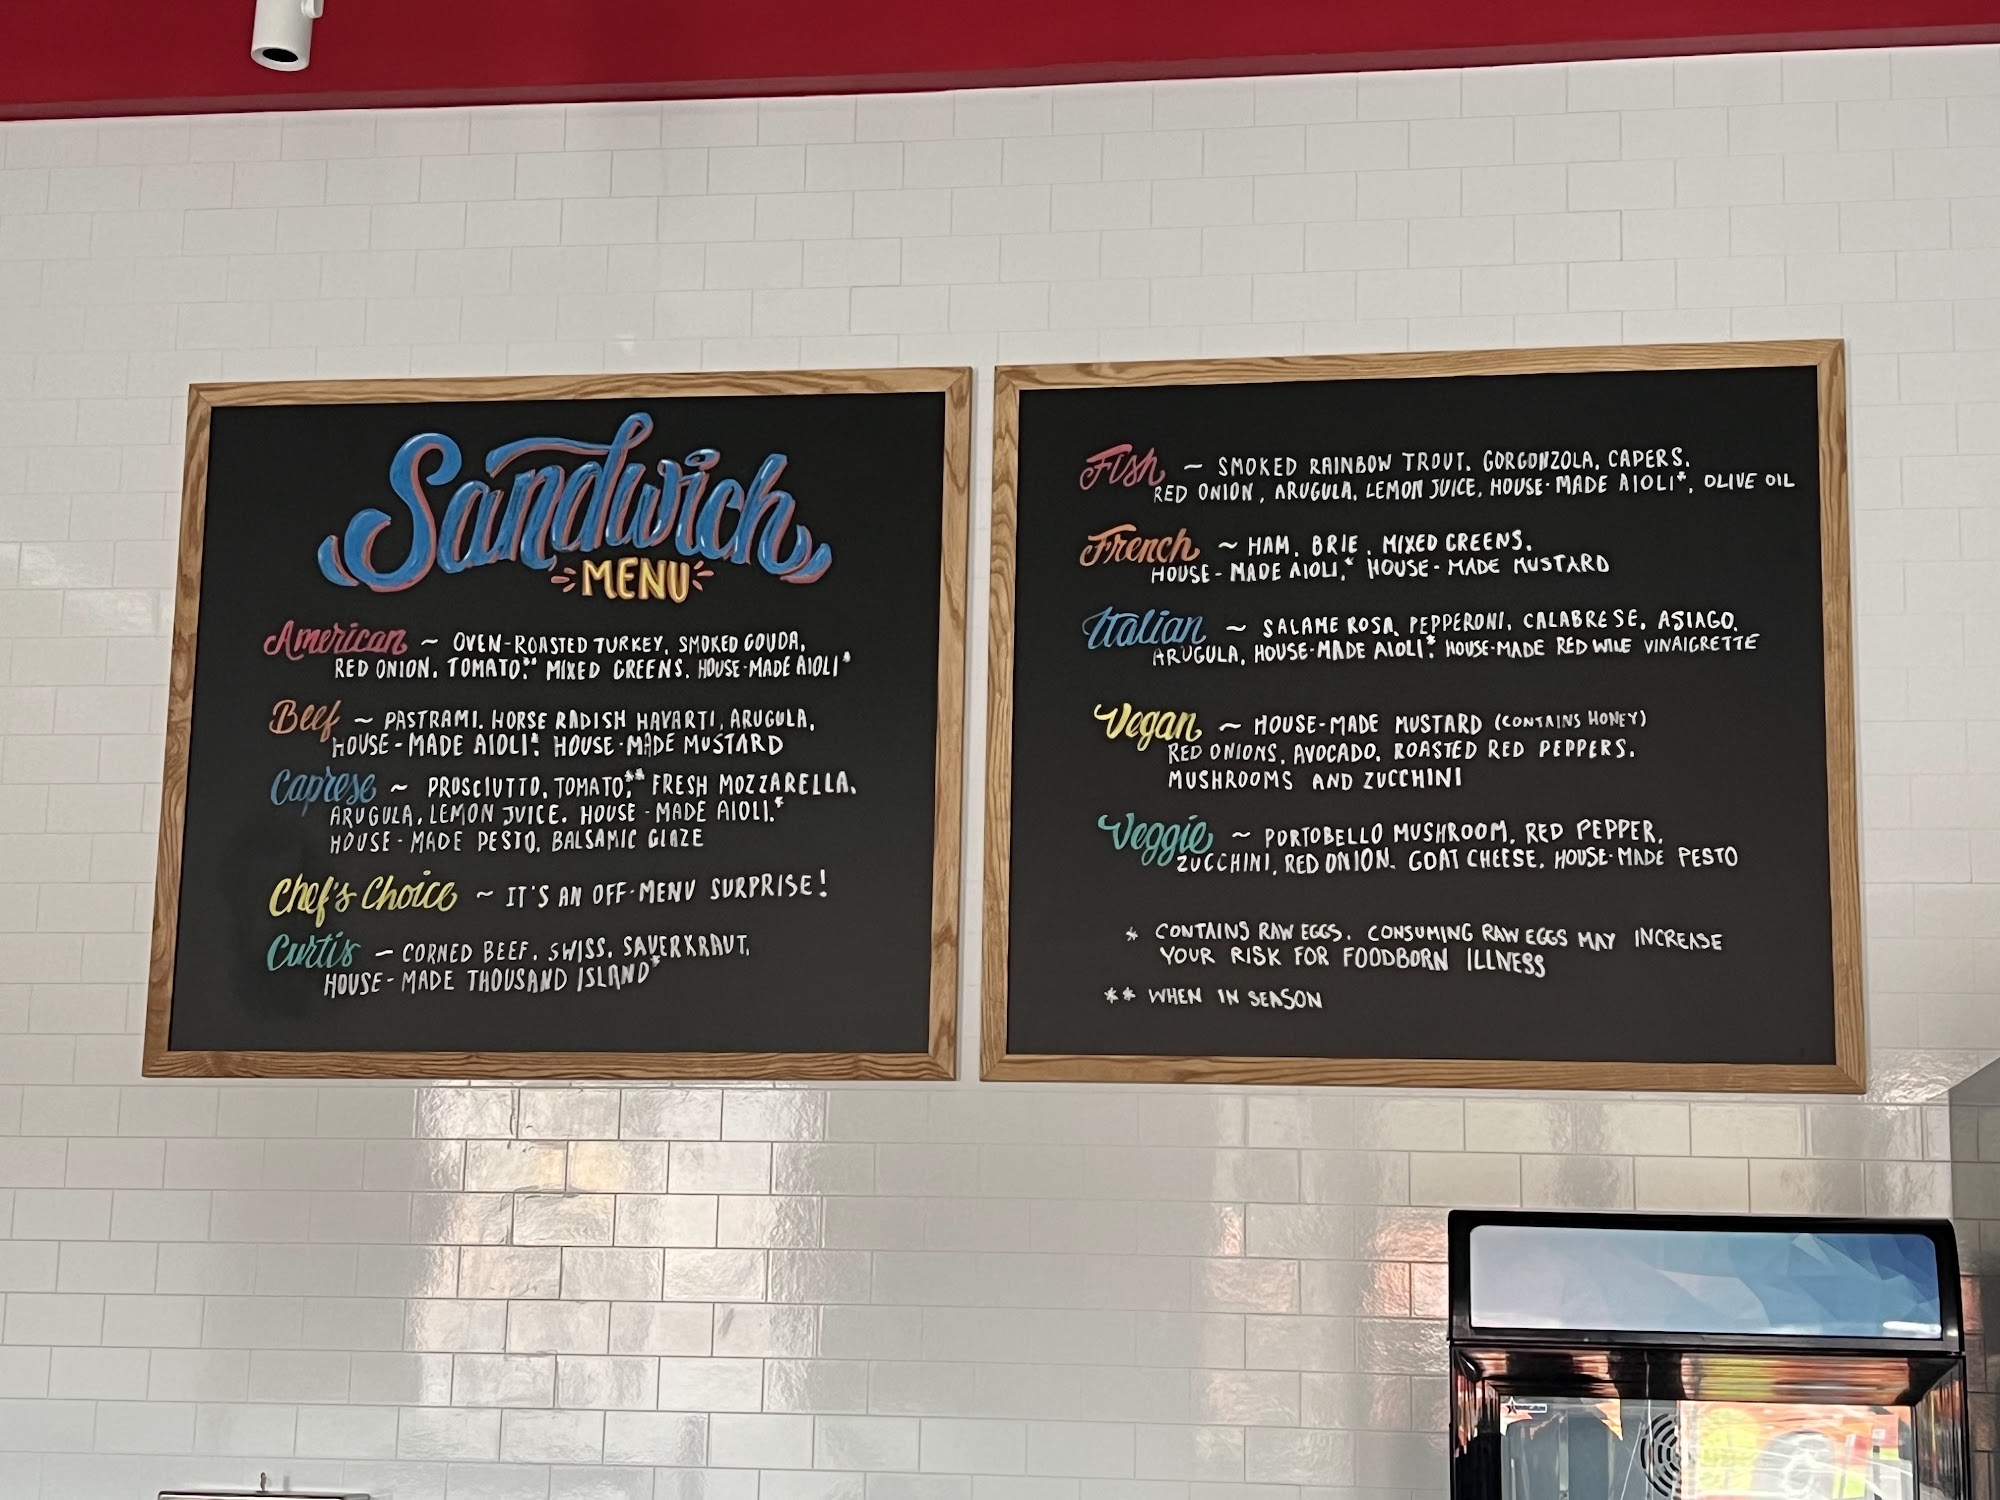 Sandwich
MENU
American ~ OVEN-ROASTED TURKEY, SMOKED GOUDA,
RED ONION, TOMATO,** MIXED GREENS, HOUSE-MADE AIOLI*
Beef ~ PASTRAMI, HORSE RADISH HAVARTI, ARUGULA,
HOUSE-MADE AIOLI*, HOUSE-MADE MUSTARD
Caprese ~ PROSCIUTTO, TOMATO,** FRESH MOZZARELLA,
ARUGULA, LEMON JUICE, HOUSE-MADE AIOLI,*
HOUSE-MADE PESTO, BALSAMIC GLAZE
Chef's Choice ~ IT'S AN OFF-MENU SURPRISE!
Curtis ~ CORNED BEEF, SWISS, SAUERKRAUT,
HOUSE-MADE THOUSAND ISLAND*
Fish ~ SMOKED RAINBOW TROUT, GORGONZOLA, CAPERS,
RED ONION, ARUGULA, LEMON JUICE, HOUSE-MADE AIOLI*, OLIVE OIL
French ~ HAM, BRIE, MIXED GREENS,
HOUSE-MADE AIOLI,* HOUSE-MADE MUSTARD
Italian ~ SALAME ROSA, PEPPERONI, CALABRESE, ASIAGO,
ARUGULA, HOUSE-MADE AIOLI*, HOUSE-MADE RED WINE VINAIGRETTE
Vegan ~ HOUSE-MADE MUSTARD (CONTAINS HONEY)
RED ONIONS, AVOCADO, ROASTED RED PEPPERS,
MUSHROOMS AND ZUCCHINI
Veggie ~ PORTOBELLO MUSHROOM, RED PEPPER,
ZUCCHINI, RED ONION, GOAT CHEESE, HOUSE-MADE PESTO
* CONTAINS RAW EGGS. CONSUMING RAW EGGS MAY INCREASE
YOUR RISK FOR FOODBORN ILLNESS
** WHEN IN SEASON